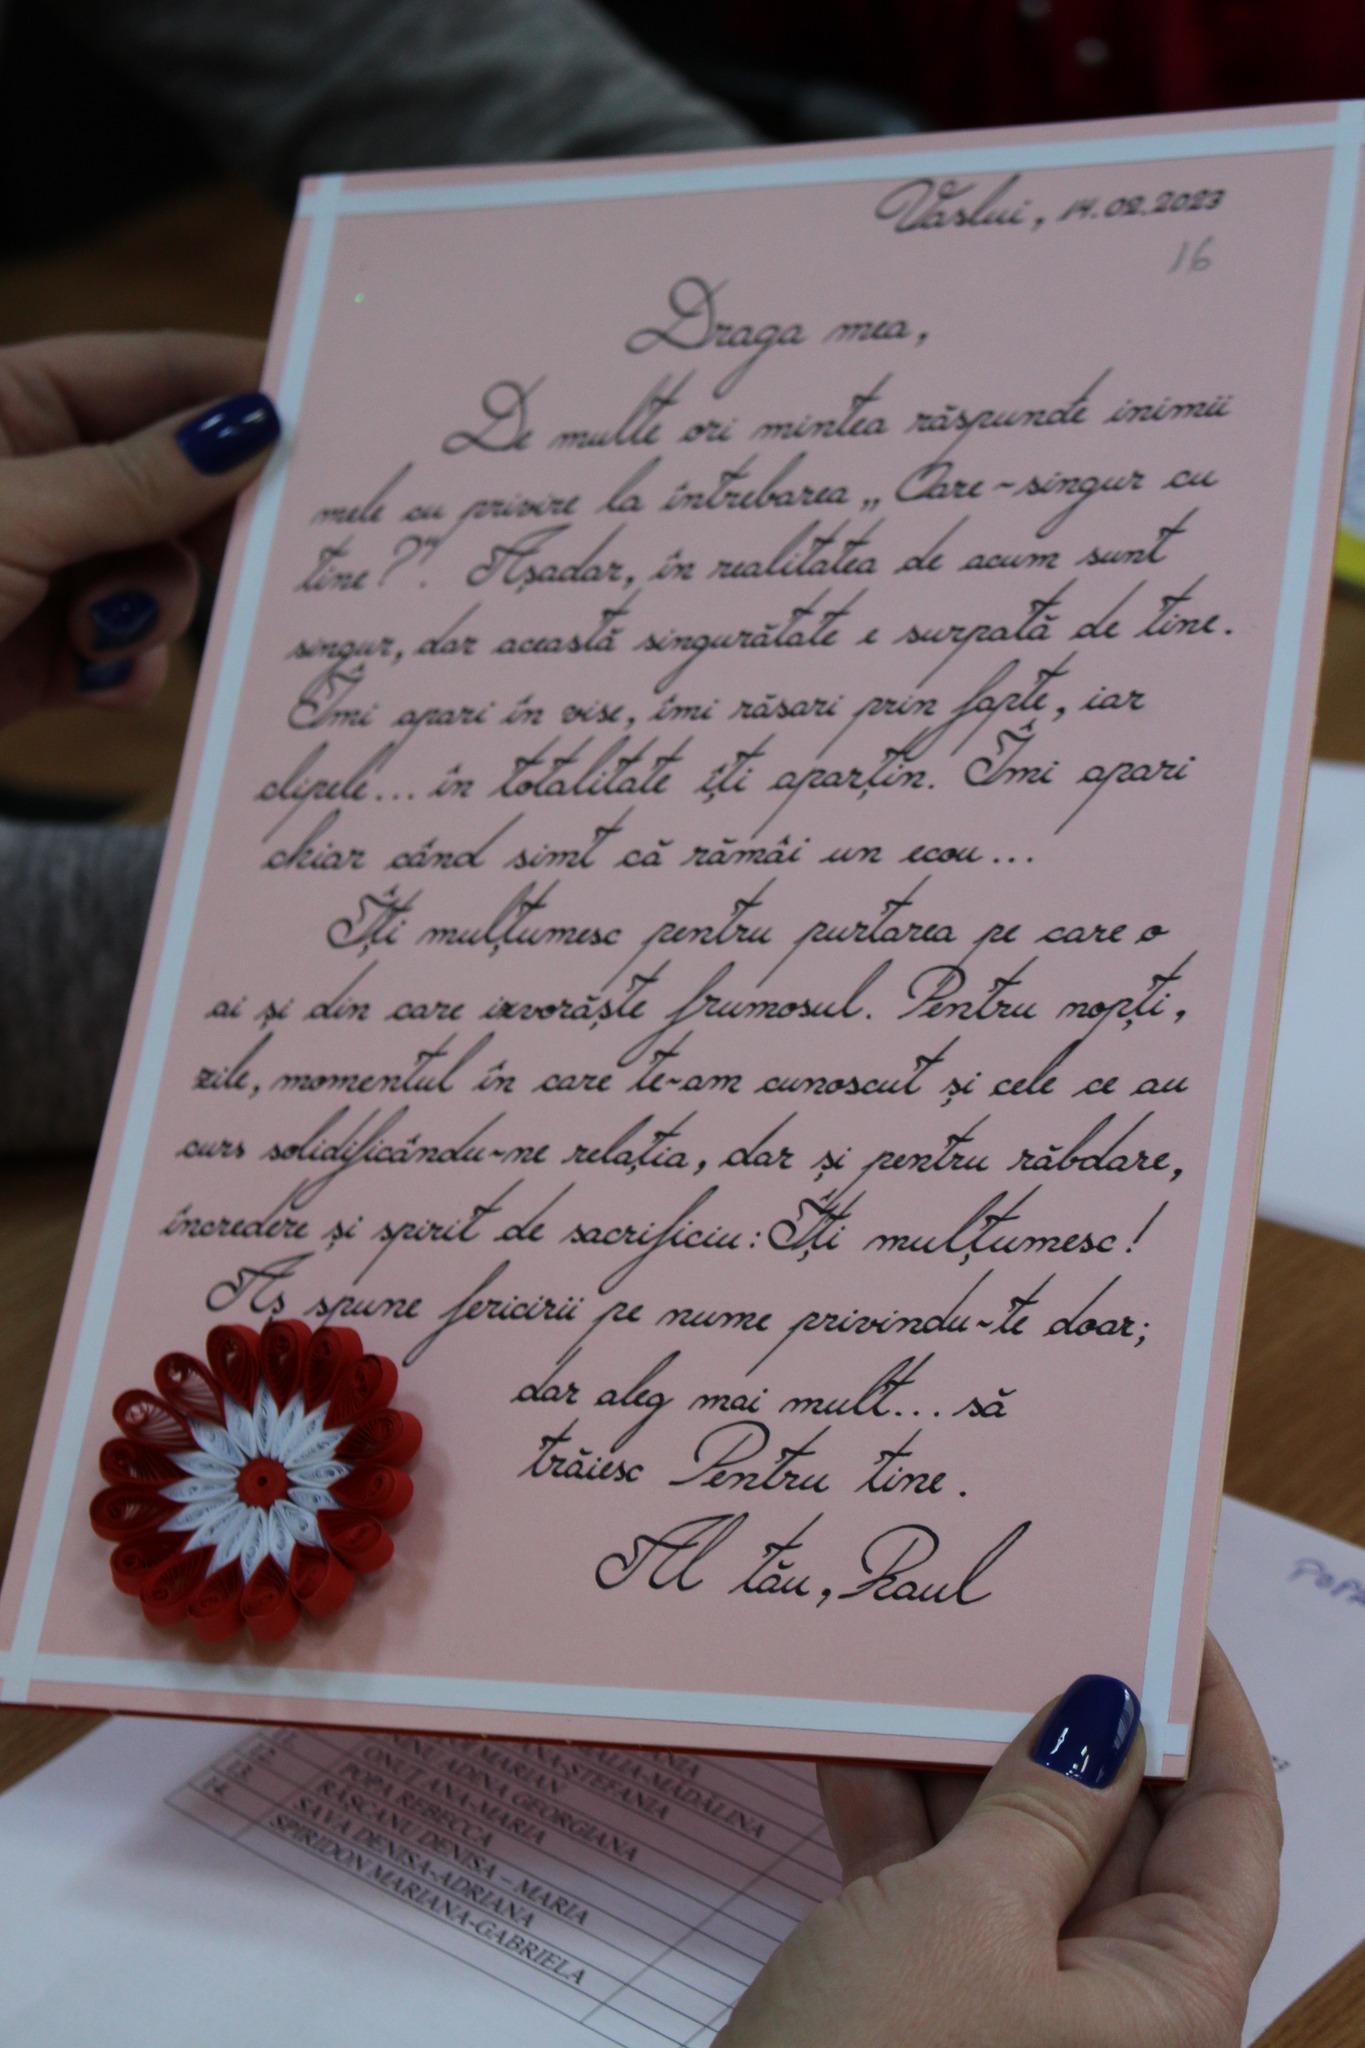 Vaslui, 14.02.2023
16
Draga mea,
De multe ori mintea răspunde inimii
mele cu privire la întrebarea „Oare-singur cu
tine?". Așadar, în realitatea de acum sunt
singur, dar această singurătate e surpată de tine.
Îmi apari în vise, îmi răsari prin fapte, iar
clipele... în totalitate îți aparțin. Îmi apari
chiar când simt că rămâi un ecou...
Îți mulțumesc pentru purtarea pe care o
ai și din care izvorăște frumosul. Pentru nopți,
zile, momentul în care te-am cunoscut și cele ce au
curs solidificându-ne relația, dar și pentru răbdare,
încredere și spirit de sacrificiu: Îți mulțumesc!
Aș spune fericirii pe nume privindu-te doar;
dar aleg mai mult... să
trăiesc Pentru tine.
Al tău, Raul
POPA
MĂDĂLINA
ȘTEFANIA
MARIAN
GEORGIANA
ANA-MARIA
REBECCA
RĂȘCANU DENISA – MARIA
13. SAVA DENISA-ADRIANA
14. SPIRIDON MARIANA-GABRIELA